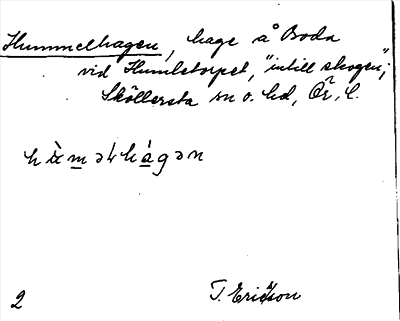 Hummelhagen, hage å Boda
vid Humletorpet, "intill skogen",
Sköllersta sn o. hd, Ör. l.
hùməɫhágən
2 T. Ericsson